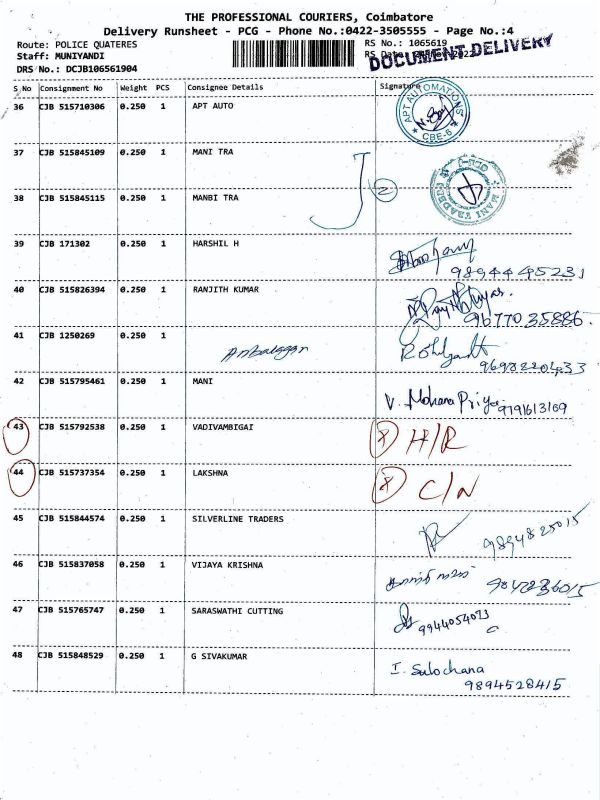 THE PROFESSIONAL COURIERS, Coimbatore
Delivery Runsheet - PCG - Phone No.:0422-3505555 - Page No.:4
Route: POLICE QUATERES
RS No.: 1065619
Staff: MUNIYANDI
RS Date:
DOCUMENT DELIVERY
DRS No.: DCJB106561904
S No Consignment No Weight PCS Consignee Details Signature
36 CJB 515710306 0.250 1 APT AUTO
APT AUTOMATIONS
CBE-6
37 CJB 515845109 0.250 1 MANI TRA
38 CJB 515845115 0.250 1 MANBI TRA
2
MANI TRADERS
39 CJB 171302 0.250 1 HARSHIL H
9894445231
40 CJB 515826394 0.250 1 RANJITH KUMAR
9677035886
41 CJB 1250269 0.250 1
Anbalagan
9698220433
42 CJB 515795461 0.250 1 MANI
V. Mohana Priya 9791613169
43 CJB 515792538 0.250 1 VADIVAMBIGAI H/R
44 CJB 515737354 0.250 1 LAKSHNA C/N
45 CJB 515844574 0.250 1 SILVERLINE TRADERS
9894825015
46 CJB 515837058 0.250 1 VIJAYA KRISHNA
9847236015
47 CJB 515765747 0.250 1 SARASWATHI CUTTING
9944054073
48 CJB 515848529 0.250 1 G SIVAKUMAR
I. Sulochana
9894528415